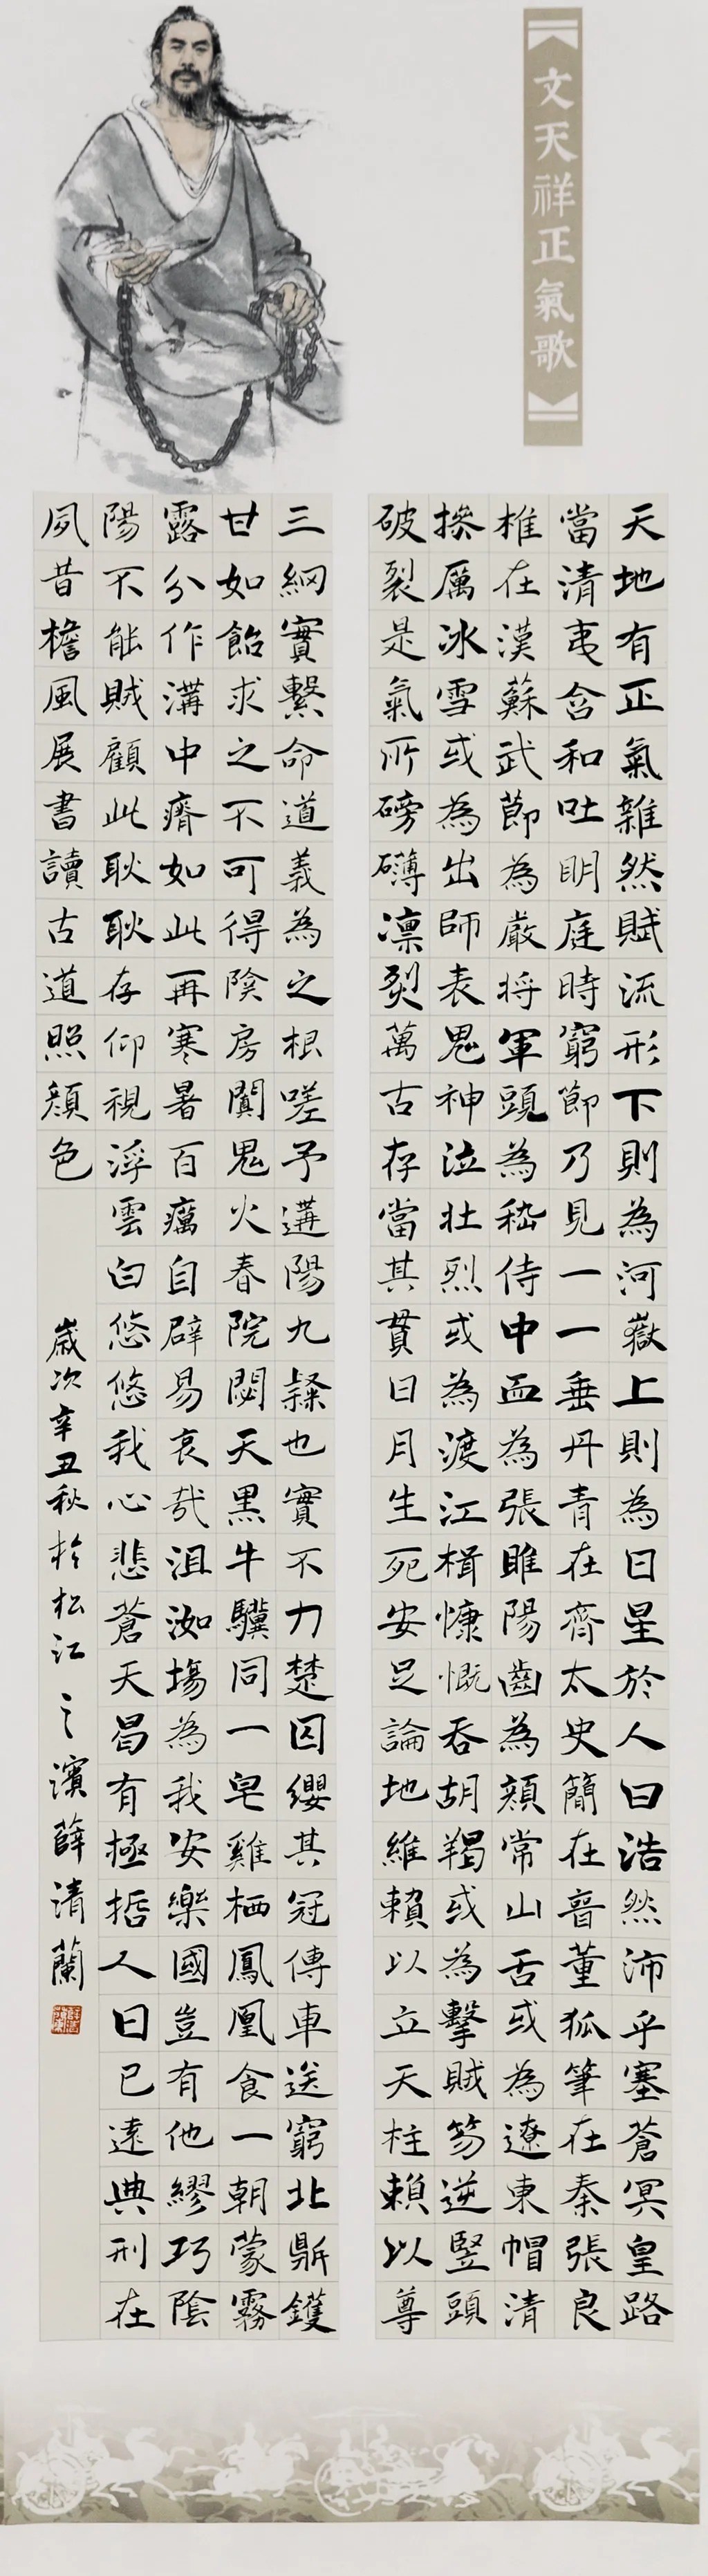 文天祥正氣歌
天地有正氣雜然賦流形下則為河嶽上則為日星於人曰浩然沛乎塞蒼冥皇路
當清夷含和吐明庭時窮節乃見一一垂丹青在齊太史簡在晉董狐筆在秦張良
椎在漢蘇武節為嚴將軍頭為嵇侍中血為張睢陽齒為顏常山舌或為遼東帽清
操厲冰雪或為出師表鬼神泣壯烈或為渡江楫慷慨吞胡羯或為擊賊笏逆豎頭
破裂是氣所磅礴凛烈萬古存當其貫日月生死安足論地維賴以立天柱賴以尊
三綱實繫命道義為之根嗟予遘陽九隸也實不力楚囚纓其冠傳車送窮北鼎鑊
甘如飴求之不可得陰房闃鬼火春院閟天黑牛驥同一皂雞栖鳳凰食一朝蒙霧
露分作溝中瘠如此再寒暑百癘自辟易哀哉沮洳場為我安樂國豈有他繆巧陰
陽不能賊顧此耿耿存仰視浮雲白悠悠我心悲蒼天曷有極哲人日已遠典刑在
夙昔檐風展書讀古道照顏色
歲次辛丑秋於松江之濱薛清蘭